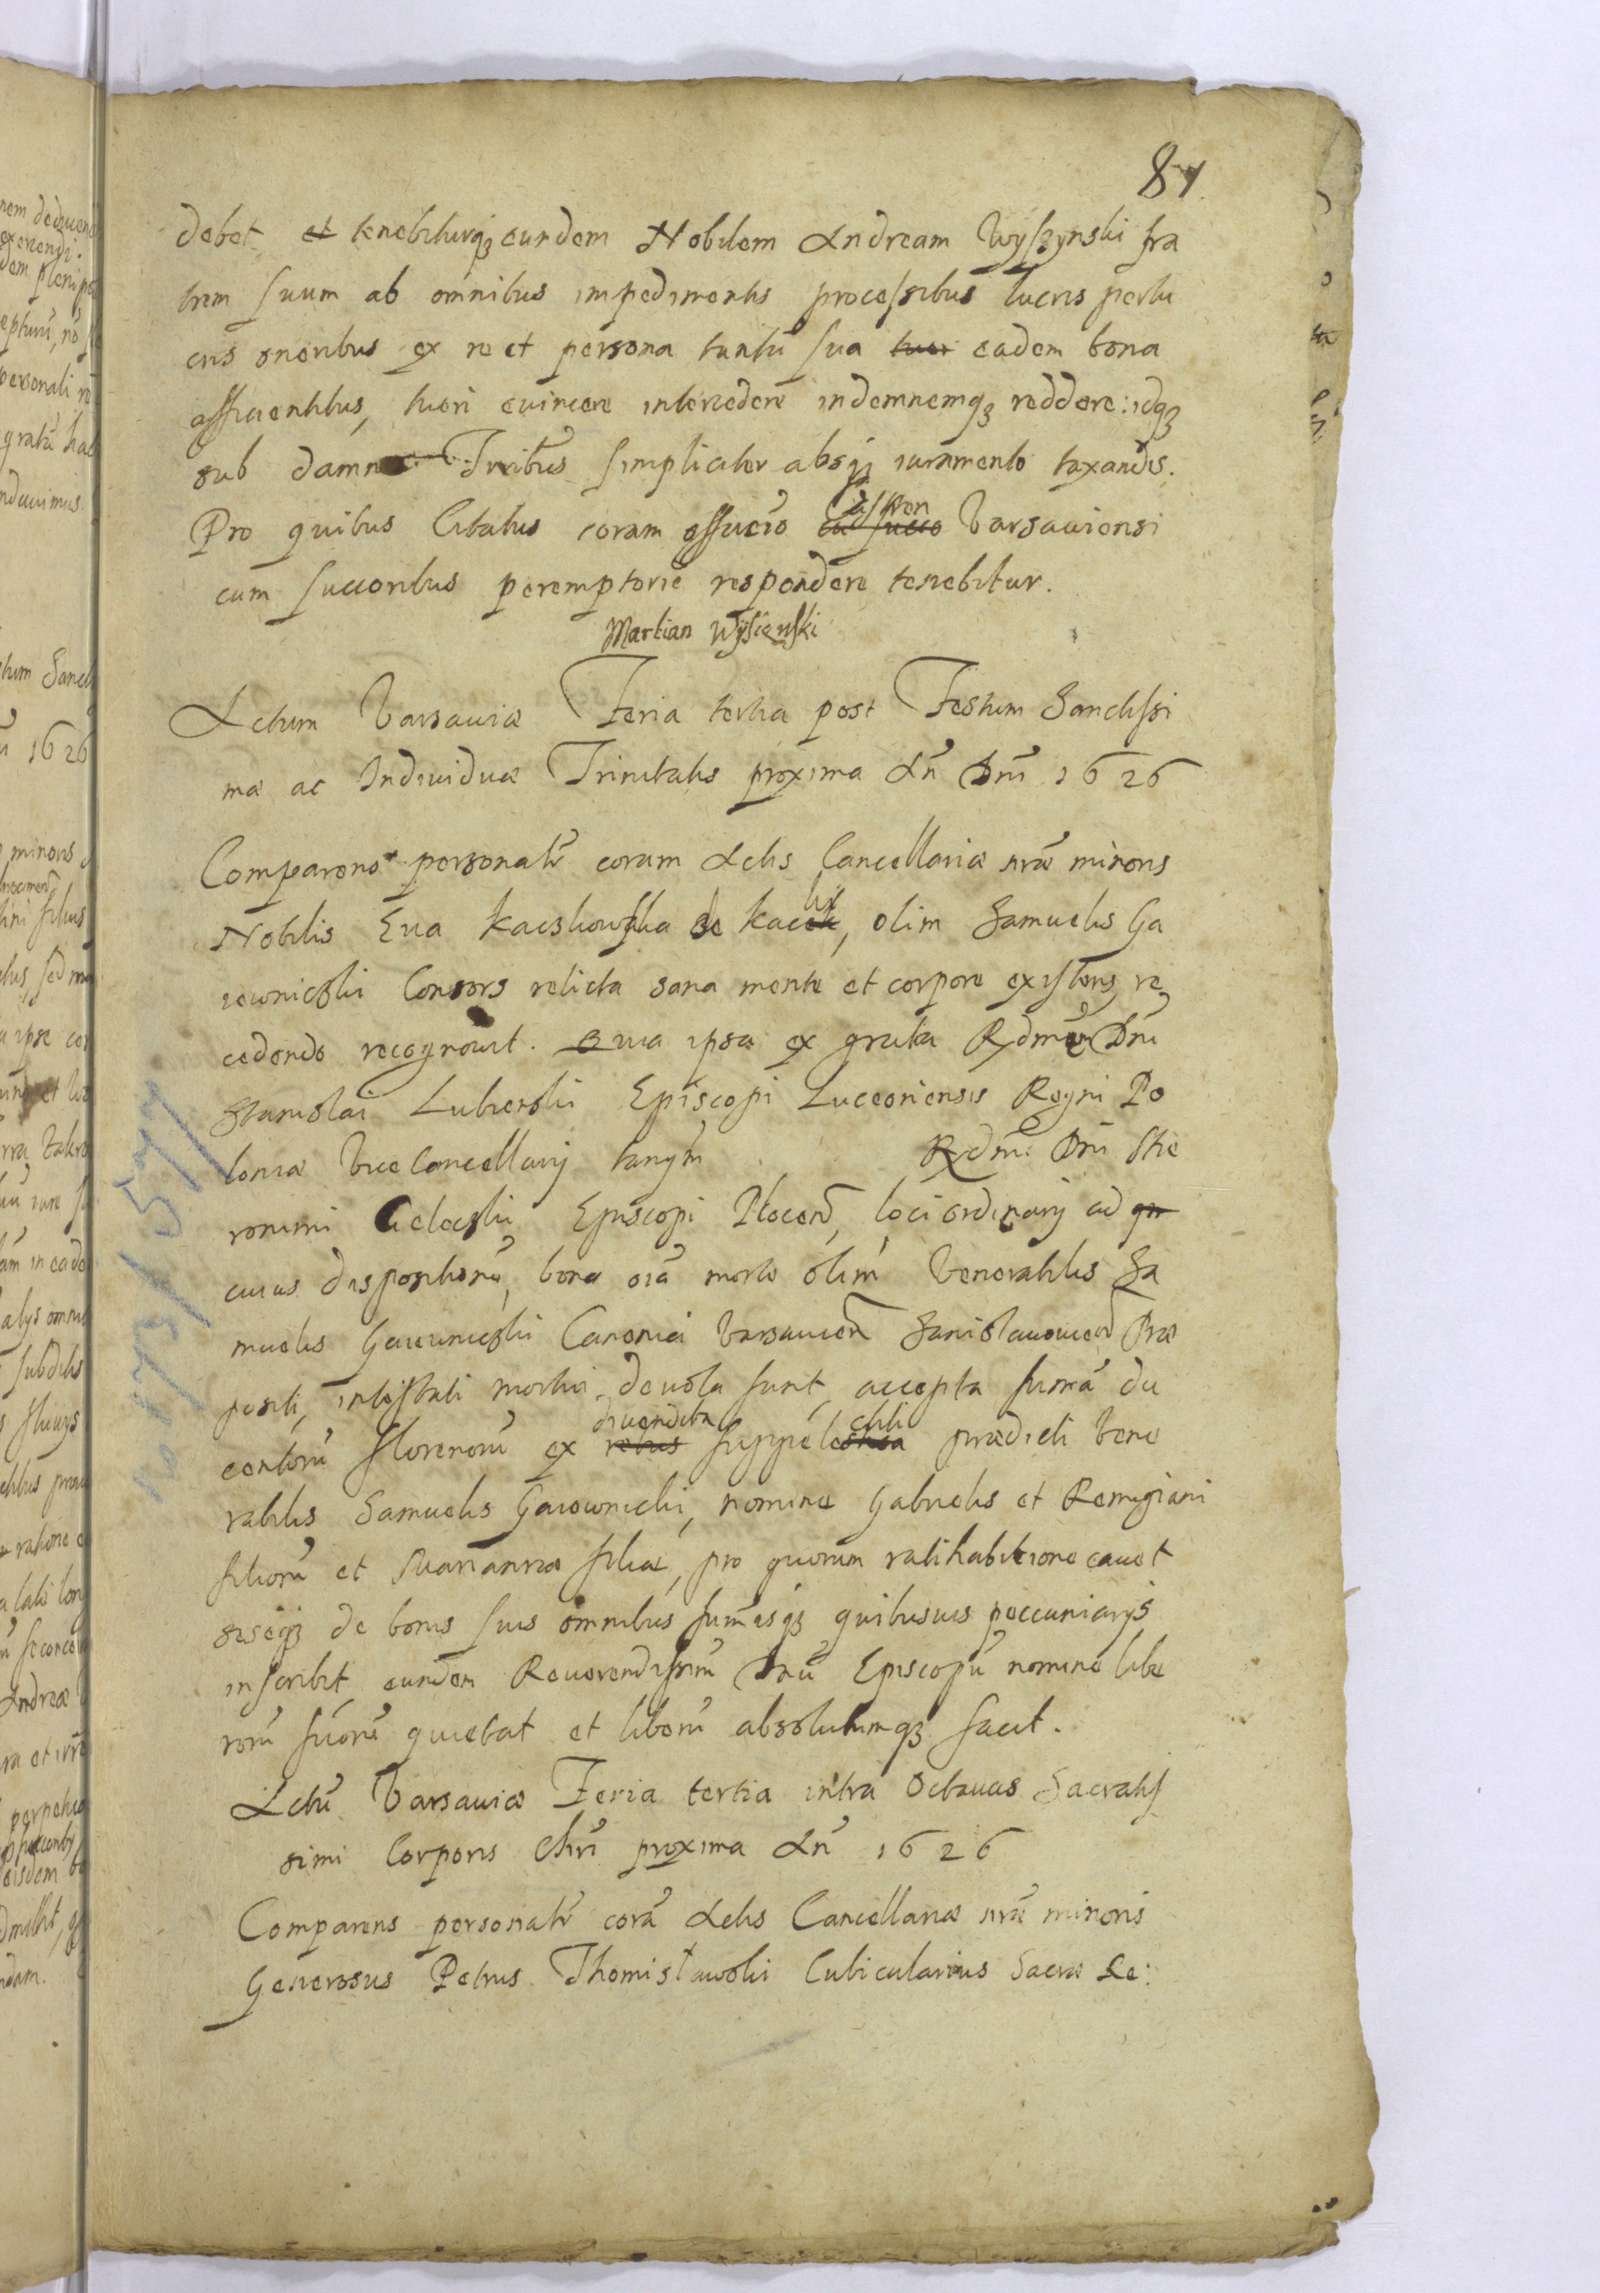 81
debet et tenebiturq3 eundem Nobilem Andream Wyszynski fra
trem suum ab omnibus impedimentis processibus lucris perlu
cris oneribus ex re et persona tantu sua tuer eadem bona
afficientibus, tueri evincere intercedere indemnemq3 reddere: idq3
sub damn Trribus simpliciter absq3 iuramento taxandis.
Pro quibus Citatus coram officio castren Varsaviensi
cum succoribus peremptorie respondere tenebitur.
Martian Wysienski
Actum Varsaviæ Feria tertia post Festum Sanctissi
mæ ac Individuæ Trinitatis proxima An Dni 1626
Comparens personalr coram Actis Cancellariæ nræ minoris
Nobilis Eva Kaczkowska de Kacz, olim Samuelis Ga
iewnicski Consors relicta sana mente et corpore existens re
cedendo recognovit. Quia ipsa ex gratia Rdm Dni
Stanislai Lubienski Episcopi Luceoriensis Regni Po
loniæ ViceCancellarij tanqm Rdmi Dni Hie
ronimi Cieleczki Episcopi Plocen, loci ordinarij ad qu
cuius dispositione, bona oia morte olim Venerabilis Sa
muelis Gaiewnicski Canonici Varsavien Stanislavovien Præ
positi, intestati mortui devoluta sunt, accepta summa du
centoru florenoru ex rebus divendita suppelectili prædicti Vene
rabilis Samuelis Gaiewnicki, nomine Gabrielis et Remigiani
filioru et Mariannæ filiæ, pro quorum ratihabitione cavet
seseq3 de bonis suis omnibus sumisq3 quibusvis peccuniarijs
inscribit eundem Reverendissim Dnu Episcopu nomine libe
roru suoru quietat et liberu absolutumq3 facit.
Actu Varsaviæ Feria tertia intra Octavas Sacratis
simi Corporis Chri proxima An 1626
Comparens personalr cora Actis Cancellariæ nræ minoris
Generosus Petrus Thomisławski Cubicularius Sacræ Re: